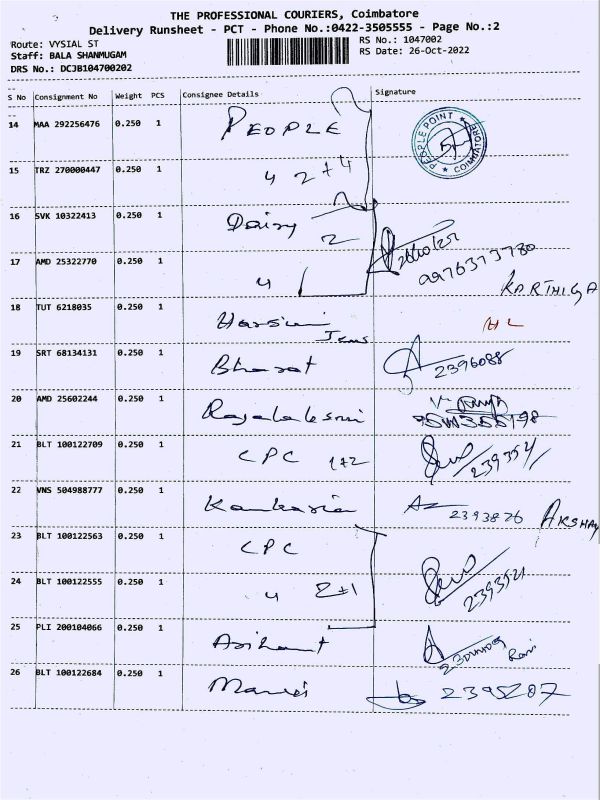 THE PROFESSIONAL COURIERS, Coimbatore
Delivery Runsheet - PCT - Phone No.:0422-3505555 - Page No.:2
Route: VYSIAL ST
RS No.: 1047002
Staff: BALA SHANMUGAM
RS Date: 26-Oct-2022
DRS No.: DCJB104700202
S No Consignment No Weight PCS Consignee Details Signature
14 MAA 292256476 0.250 1 PEOPLE
PEOPLE POINT ★ COIMBATORE ★
15 TRZ 270000447 0.250 1 " 2+4
16 SVK 10322413 0.250 1 Daisy 2
17 AMD 25322770 0.250 1 " KARTHIGA
18 TUT 6218035 0.250 1
19 SRT 68134131 0.250 1 Bharat 2396088
20 AMD 25602244 0.250 1
21 BLT 100122709 0.250 1 CPC 1+2
22 VNS 504988777 0.250 1 2393826 AKSHAY
23 BLT 100122563 0.250 1 CPC
24 BLT 100122555 0.250 1 " 2+1
25 PLI 200104066 0.250 1 Arihant Ravi
26 BLT 100122684 0.250 1 2395207